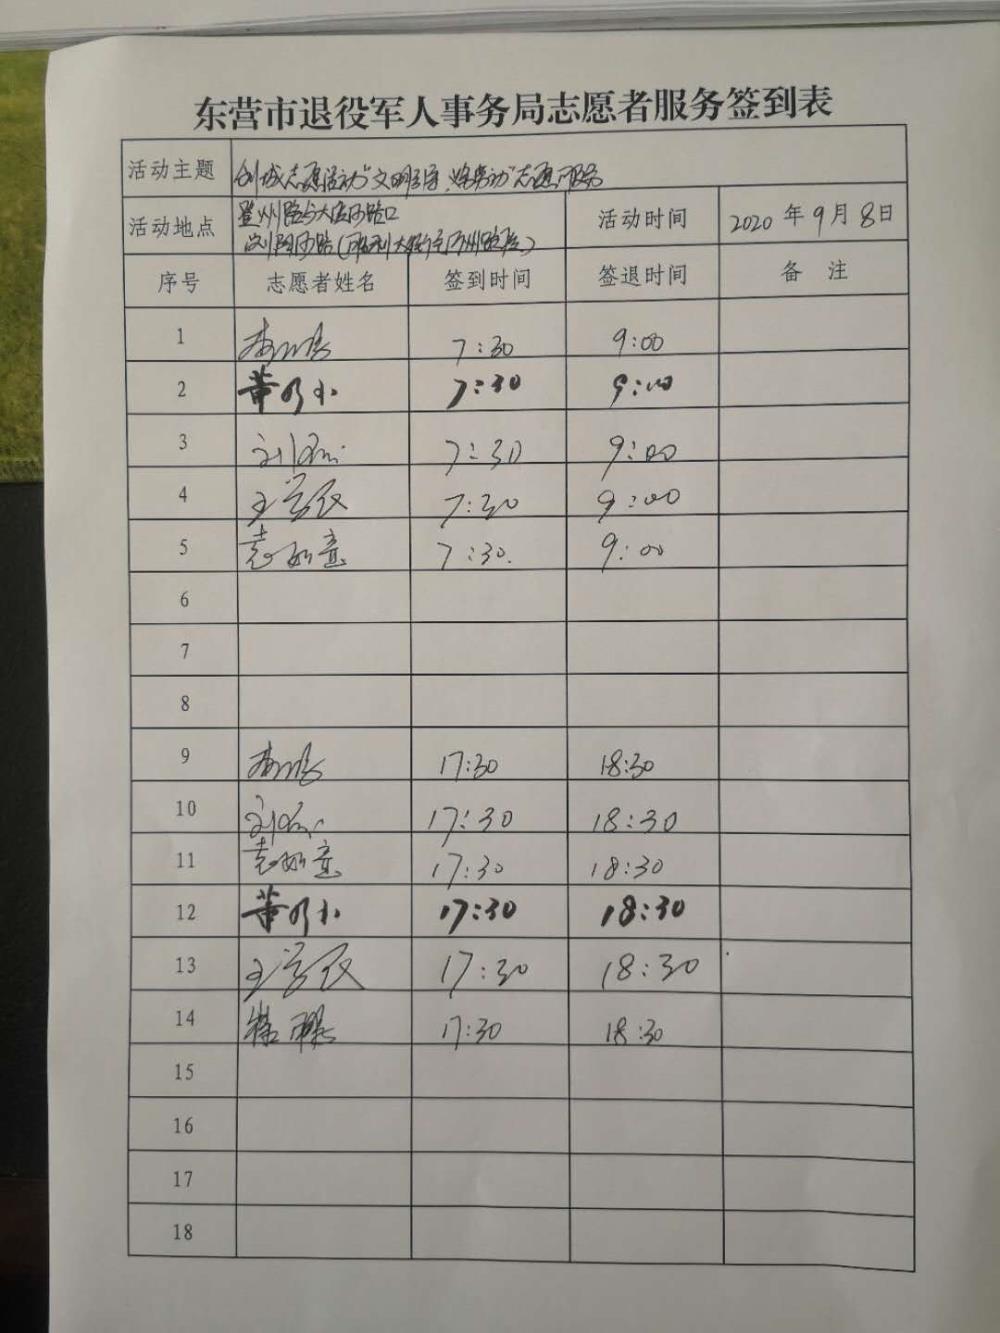 东营市退役军人事务局志愿者服务签到表
活动主题 创城志愿活动"文明引导、 劳动"志愿服务
活动地点 登州路与大渡河路口 活动时间 2020年9月8日
序号 志愿者姓名 签到时间 签退时间 备注
1 7:30 9:00
2 董 7:30 9:00
3 刘 7:30 9:00
4 王 7:30 9:00
5 袁如意 7:30. 9:00
6
7
8
9 17:30 18:30
10 刘 17:30 18:30
11 袁如意 17:30 18:30
12 董 17:30 18:30
13 王 17:30 18:30
14 17:30 18:30
15
16
17
18